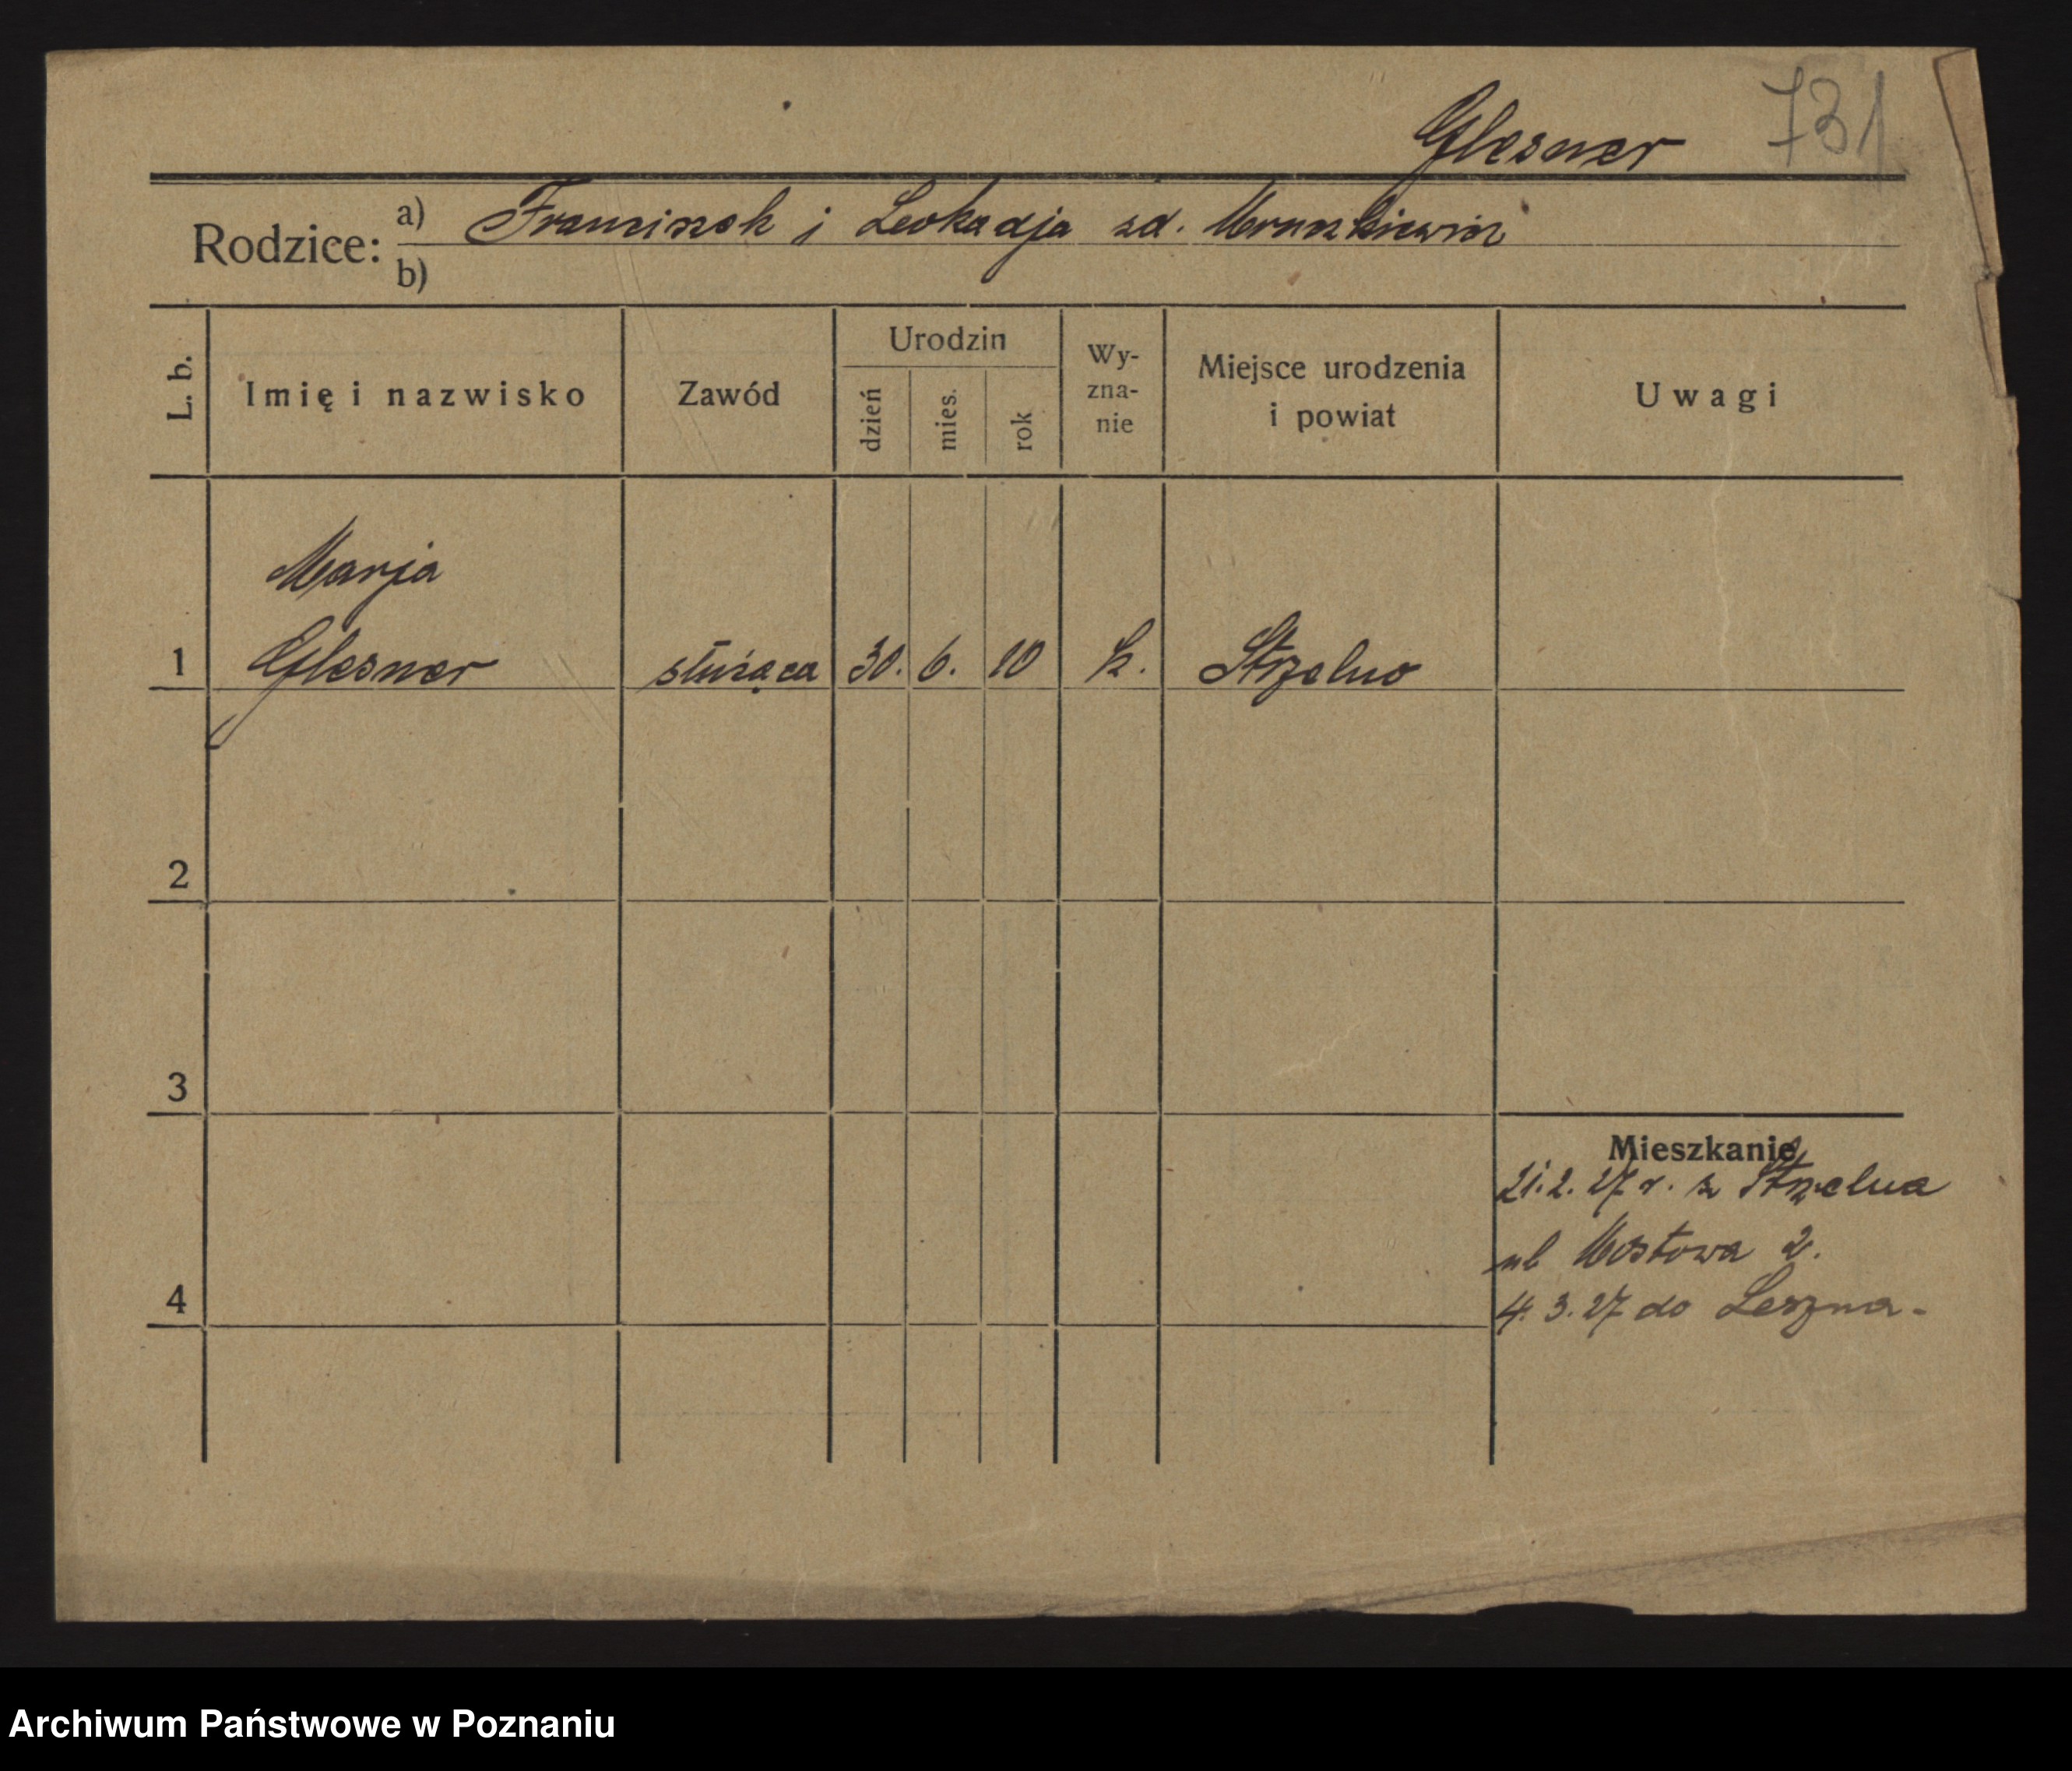 Glesner 731
Rodzice: a) Franciszek i Leokadja zd.
b)
L. b. Imię i nazwisko Zawód Urodzin dzień mies. rok Wy-zna-nie Miejsce urodzenia i powiat Uwagi
Marja
1 Glesner służąca 30. 6. 10 k. Strzelno
2
3
Mieszkanie
21. 2. 27 r. z Strzelna
ul Mostowa 2.
4
4. 3. 27 do Leszna.
Archiwum Państwowe w Poznaniu